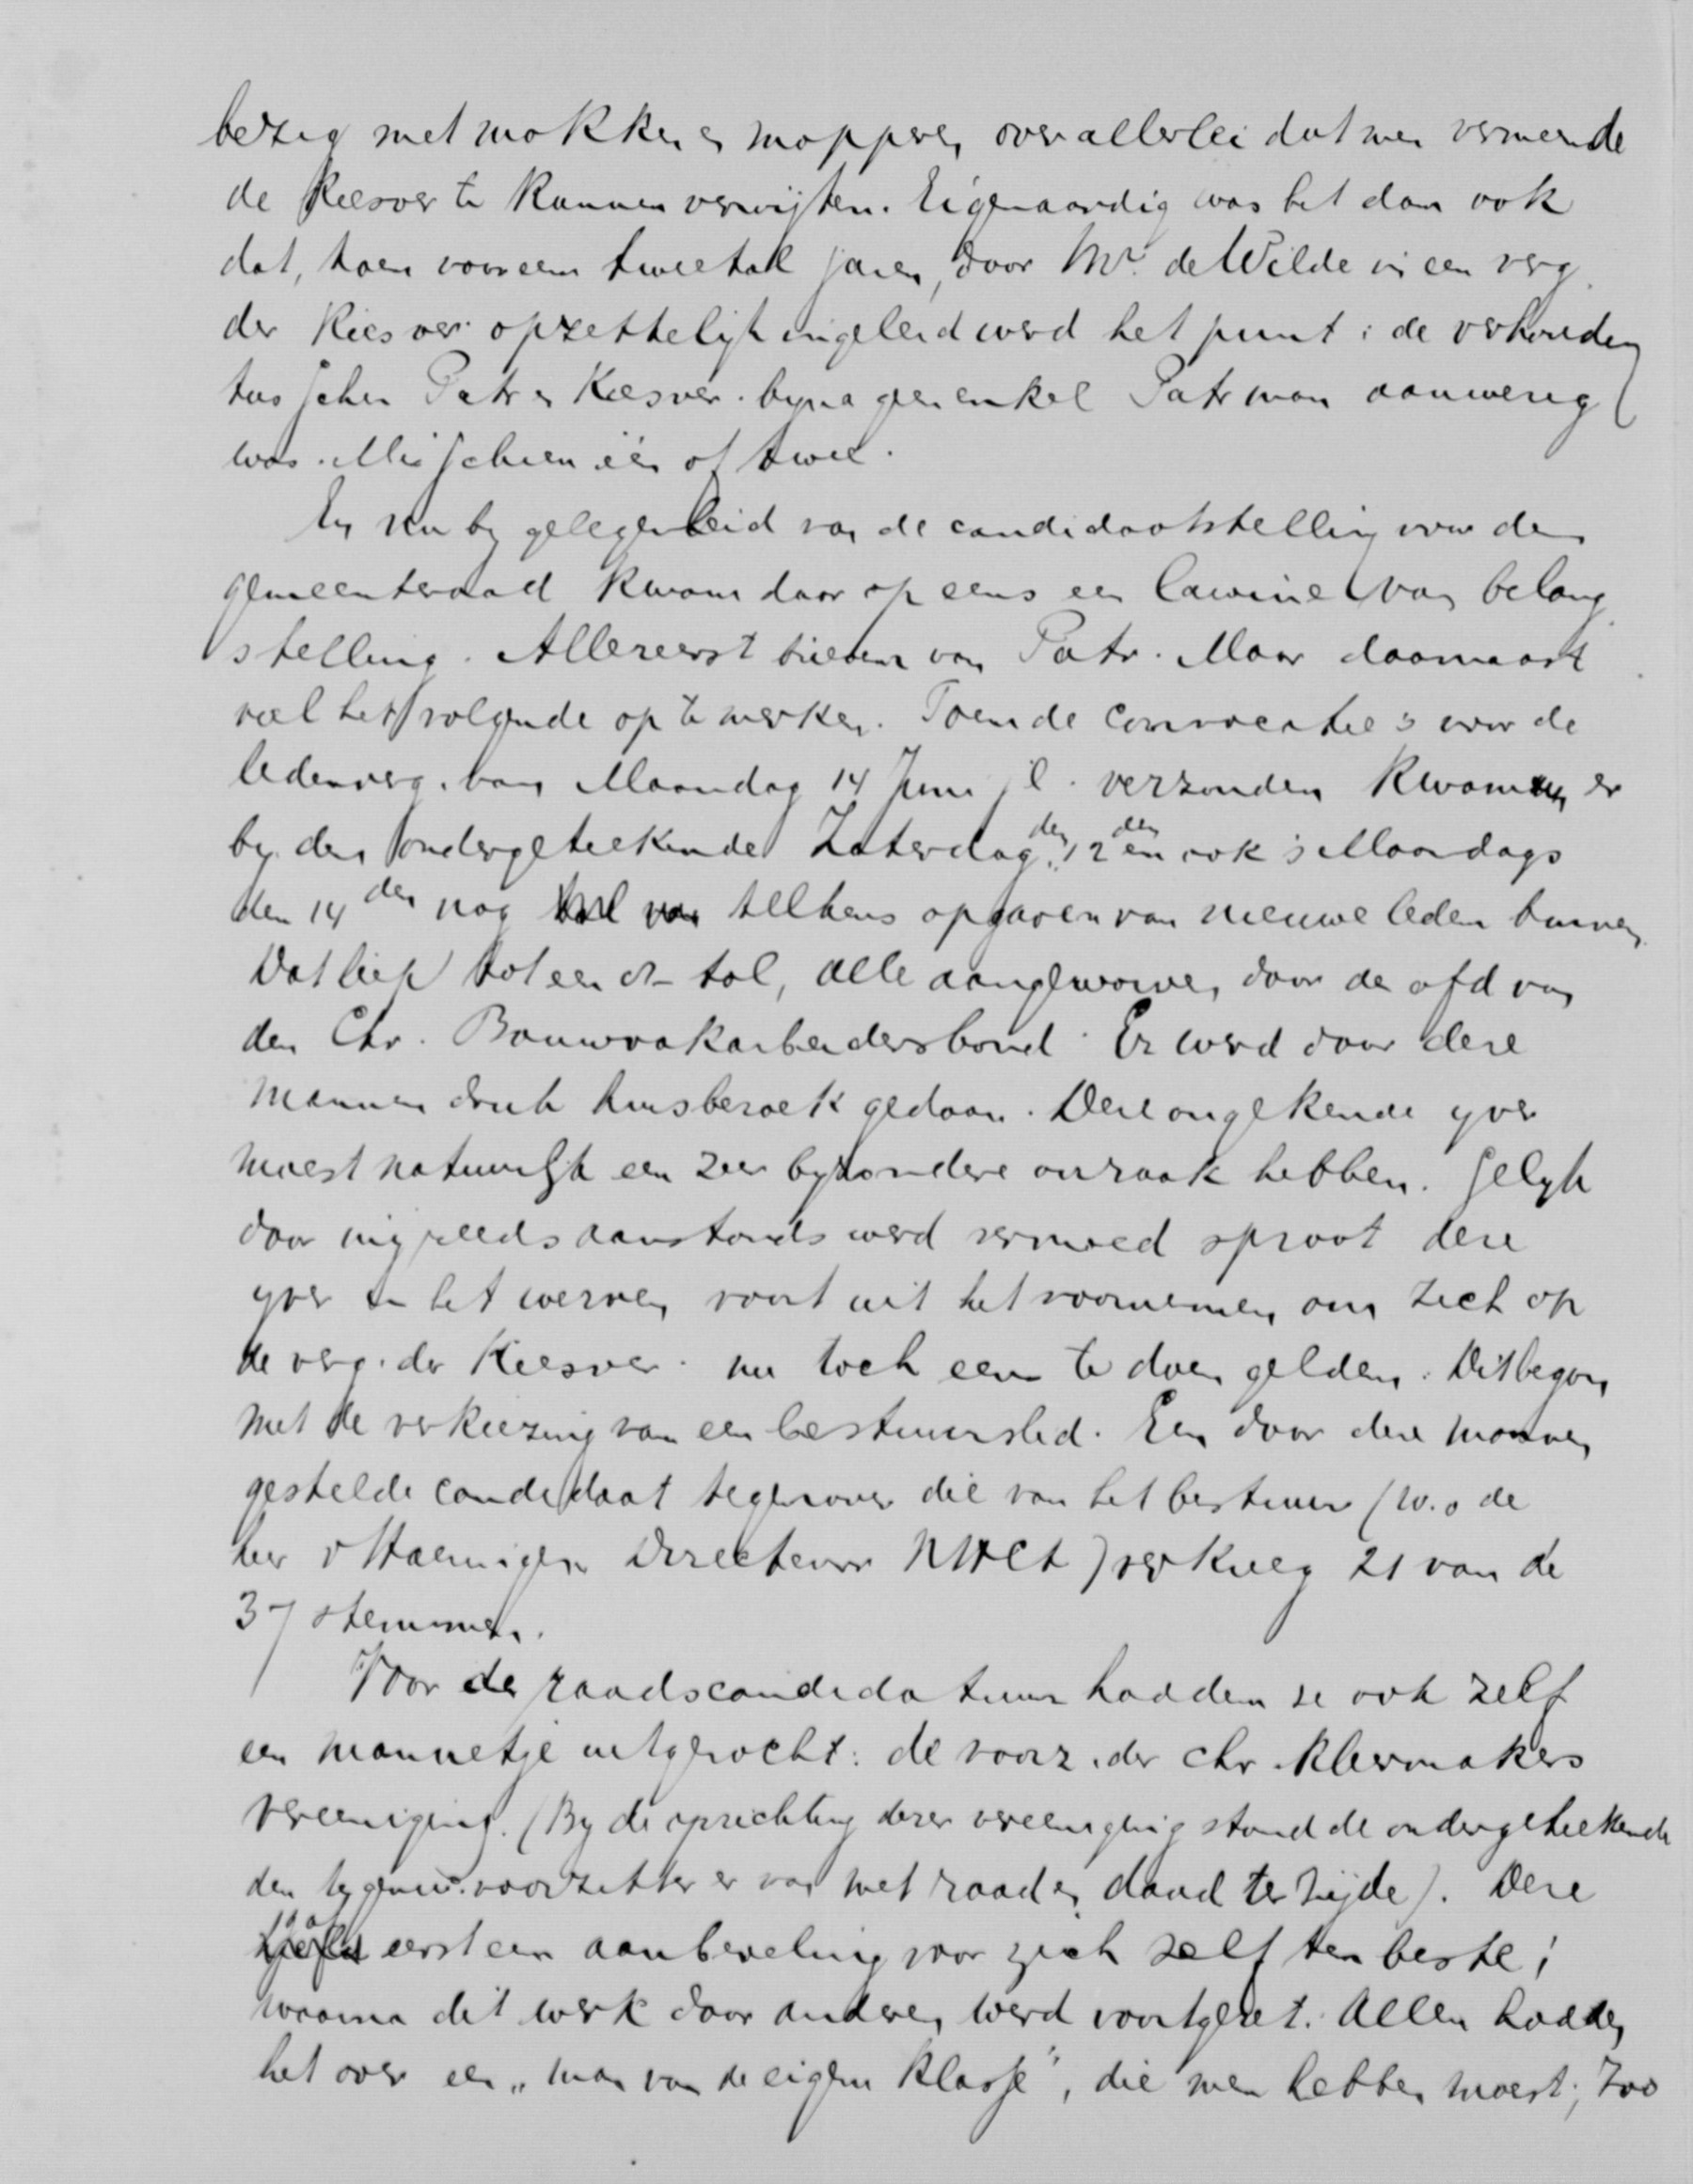 bezig met mokken en mopperen over allerlei dat men vermeende
de Kiesver te kunnen verwijten. Eigenaardig was het dan ook
dat, toen voor een tweetal jaren, door Mr. de Wilde in een verg.
der Kiesver. opzettelijk ingeleid werd het punt: de verhouding
tusschen Patr en Kiesver. byna geen enkel Patr man aanwezig
was. Misschien één of twee.
En nu by gelegenheid van de candidaatstelling voor den
gemeenteraad kwam daar op eens een lawine van belang
stelling. Allereerst brieven van Patr. Maar daarnaast
viel het volgende op te merken. Toen de convocatie's voor de
ledenverg. van Maandag 14 Juni jl. verzonden kwamen er
by den ondergeteekende Zaterdag den 12 den en ook 's Maandags
den 14 den nog telkens opgaven van nieuwe leden binnen
Dat liep tot een tal, alle aangeworven door de afd van
den Chr. Bouwvakarbeidersbond. Er werd door deze
mannen druk huisbezoek gedaan. Deze ongekende yver
moest natuurlijk een zeer byzondere oorzaak hebben. Gelyk
door my reeds aanstonds werd vermoed sproot deze
yver in het werven voort uit het voornemen om zich op
de verg. der Kiesver. nu toch eens te doen gelden. Dit begon
met de verkiezing van een bestuurslid. Een door deze mannen
gestelde candidaat tegenover die van het bestuur (w.o de
heer v Haeringen Directeur) verkreeg 21 van de
37 stemmen.
Voor de raadscandidatuur hadden ze ook zelf
een mannetje uitgezocht: de voorz. der chr. kleermakers
vereeniging. (By de oprichting dezer vereeniging stond de ondergeteekende
den tegenw. voorzitter er van met raad en daad ter zijde). Deze
gaf eerst een aanbeveling voor zich zelf ten beste;
waarna dit werk door anderen werd voortgezet. Allen hadden
het over een „man van de eigen klasse", die men hebben moest; Zoo